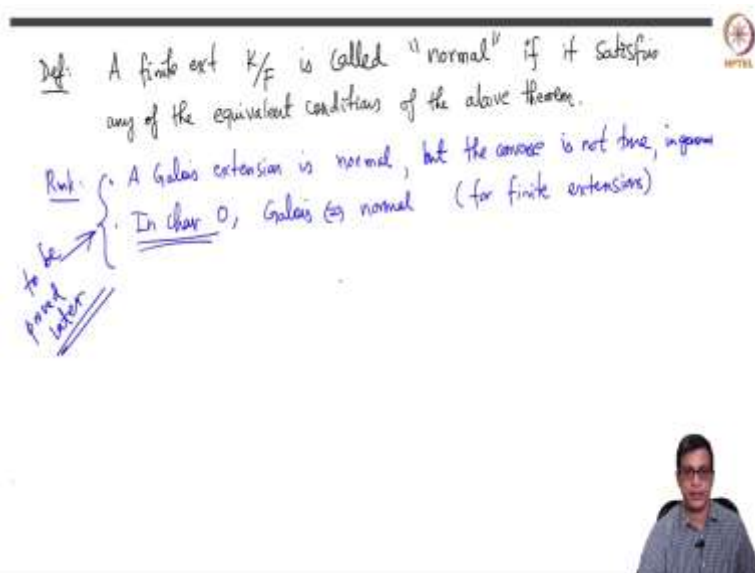 Def: A finite ext K/F is called "normal" if it satisfies
any of the equivalent conditions of the above theorem.
Rmk: · A Galois extension is normal, but the converse is not true, in general
· In char 0, Galois ⇔ normal (for finite extensions)
to be
proved
later
NPTEL